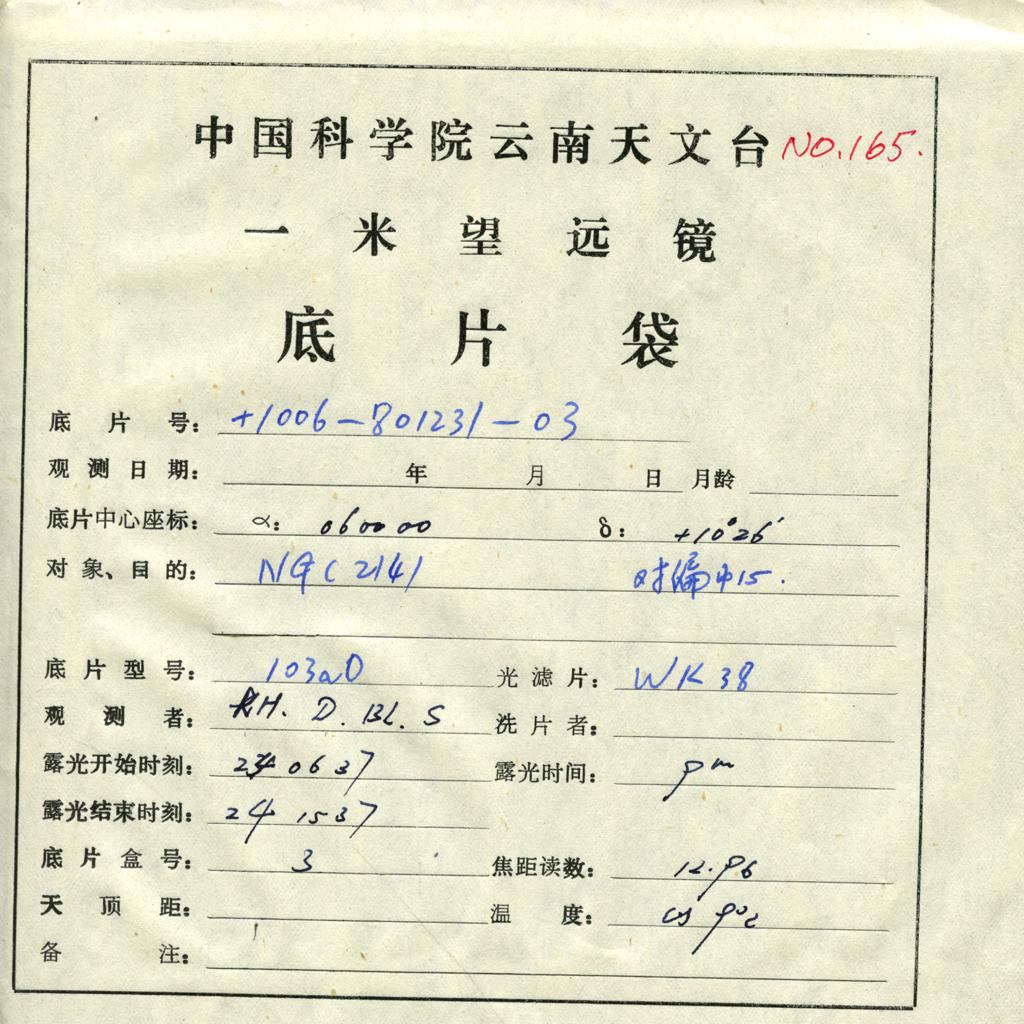 中国科学院云南天文台 NO.165.
一米望远镜
底片袋
底片号: +1006-801231-03
观测日期: 年 月 日 月龄
底片中心座标: α: 060000 δ: +10°26′
对象、目的: NGC 2141 对偏中15.
底片型号: 103aD 光滤片: WK38
观测者: H. D. BL. S 洗片者:
露光开始时刻: 24 06 37 露光时间: 9m
露光结束时刻: 24 15 37
底片盒号: 3 焦距读数: 12.96
天顶距: 温度: 9°c
备注: